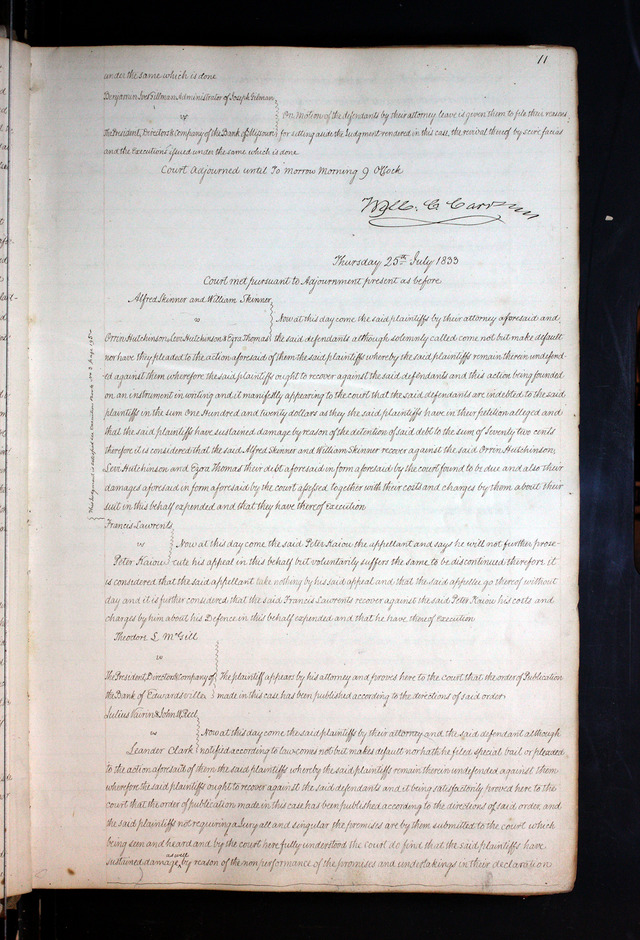 11
under the same which is done
Benjamin Ives Gillman Administrator of Joseph
vs
On motion of the defendants by their attorney leave is given them to file their reasons
The President, Directors & Company of the Bank of Missouri for setting aside the Judgment rendered in this case, the revival thereof by scire facias
and the Executions issued under the same which is done
Court Adjourned until To morrow Morning 9 OClock
Thursday 25th July 1833
Court met pursuant to Adjournment present as before
Alfred Skinner and William Skinner
vs
Now at this day come the said plaintiffs by their attorney aforesaid and
Orrin Hutchinson, Levi Hutchinson & Ezra Thomas the said defendants although solemnly called come not but make default
nor have they pleaded to the action aforesaid of them the said plaintiffs whereby the said plaintiffs remain therein undefend-
ed against them wherefore the said plaintiffs ought to recover against the said defendants and this action being founded
on an instrument in writing and it manifestly appearing to the court that the said defendants are indebted to the said
plaintiffs in the sum One Hundred and twenty dollars as they the said plaintiffs have in their petition alleged and
that the said plaintiffs have sustained damage by reason of the detention of said debt to the sum of Seventy two cents
therefore it is considered that the said Alfred Skinner and William Skinner recover against the said Orrin Hutchinson,
Levi Hutchinson and Ezra Thomas their debt aforesaid in form aforesaid by the court found to be due and also their
damages aforesaid in form aforesaid by the court assessed together with their costs and charges by them about their
suit in this behalf expended and that they have thereof execution
This Judgment is satisfied see Execution Book
Francis Lawrents
vs
Now at this day come the said Peter Kaiou the appellant and says he will not further prose-
Peter Kaiou cute his appeal in this behalf but voluntarily suffers the same to be discontinued therefore it
is considered that the said appellant take nothing by his said appeal and that the said appellee go thereof without
day and it is further considered that the said Francis Lawrents recover against the said Peter Kaiou his costs and
charges by him about his Defence in this behalf expended and that he have thereof Execution
Theodore L McGill
vs
The President, Directors & Company of The plaintiff appears by his attorney and proves here to the court that the order of Publication
the Bank of Edwardsville made in this case has been published according to the directions of said order
& John W Reel
vs
Now at this day come the said plaintiffs by their attorney and the said defendant although
Leander Clark notified according to law comes not but makes default nor hath he filed special bail or pleaded
to the action aforesaid of them the said plaintiffs whereby the said plaintiffs remain therein undefended against them
wherefore the said plaintiffs ought to recover against the said defendants and it being satisfactorily proved here to the
court that the order of publication made in this case has been published according to the directions of said order, and
the said plaintiffs not requiring a Jury all and singular the premises are by them submitted to the court which
being seen and heard and by the court here fully understood the court do find that the said plaintiffs have
sustained damage as well by reason of the non performance of the promises and undertakings in their declaration